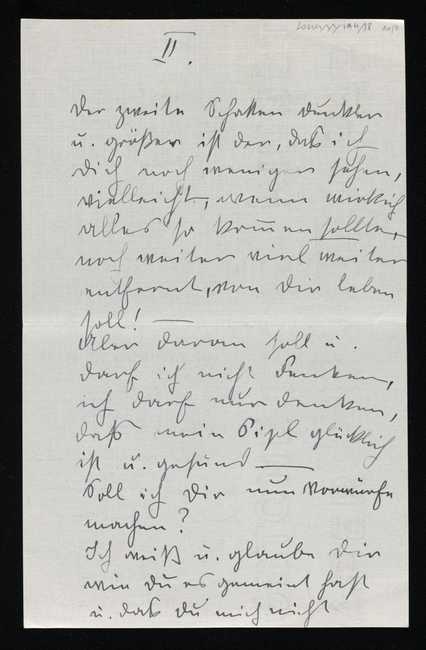 II.
Der zweite Schatten dunkler
u. größer ist der, daß ich
Dich noch weniger sehen,
vielleicht, wenn wirklich
alles so kommen sollte,
noch weiter viel weiter
entfernt, von Dir leben
soll! —
Aber daran soll u.
darf ich nicht denken,
ich darf nur denken,
daß mein Pipl glücklich
ist u. gesund —
Soll ich Dir nun Vorwürfe
machen?
Ich weiß u. glaube Dir
wie Du es gemeint hast
u. daß Du mich nicht